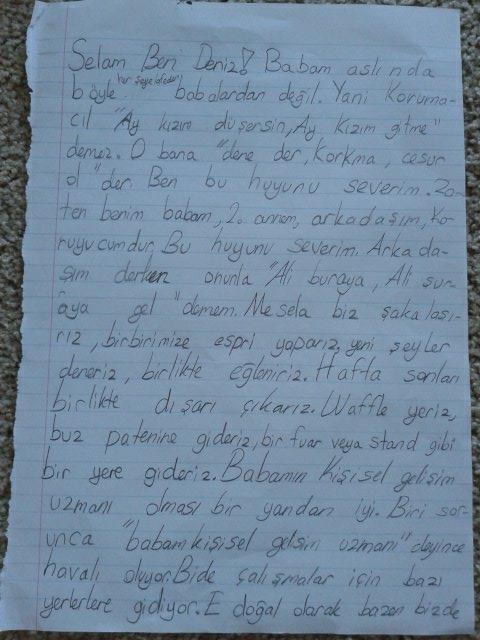 Selam Ben Deniz! Babam aslında
böyle "her şeye lafeder" babalardan değil. Yani Koruma-
cıl "Ay kızım düşersin, Ay kızım gitme"
demez. O bana "dene der, korkma, cesur
ol" der. Ben bu huyunu severim. Za-
ten benim babam, 2. annem, arkadaşım, ko-
ruyucumdur. Bu huyunu severim. Arkada-
şım derken onunla "Ali buraya, Ali şur-
aya gel" demem. Mesela biz şakalaşı-
rız, birbirimize espri yaparız, yeni şeyler
deneriz, birlikte eğleniriz. Hafta sonları
birlikte dışarı çıkarız. Waffle yeriz,
buz patenine gideriz, bir fuar veya stand gibi
bir yere gideriz. Babamın kişisel gelişim
uzmanı olması bir yandan iyi. Biri sor-
unca "babam kişisel gelsin uzmanı" deyince
havalı oluyor. Bide çalışmalar için bazı
yerlerlere gidiyor. E doğal olarak bazen bizde